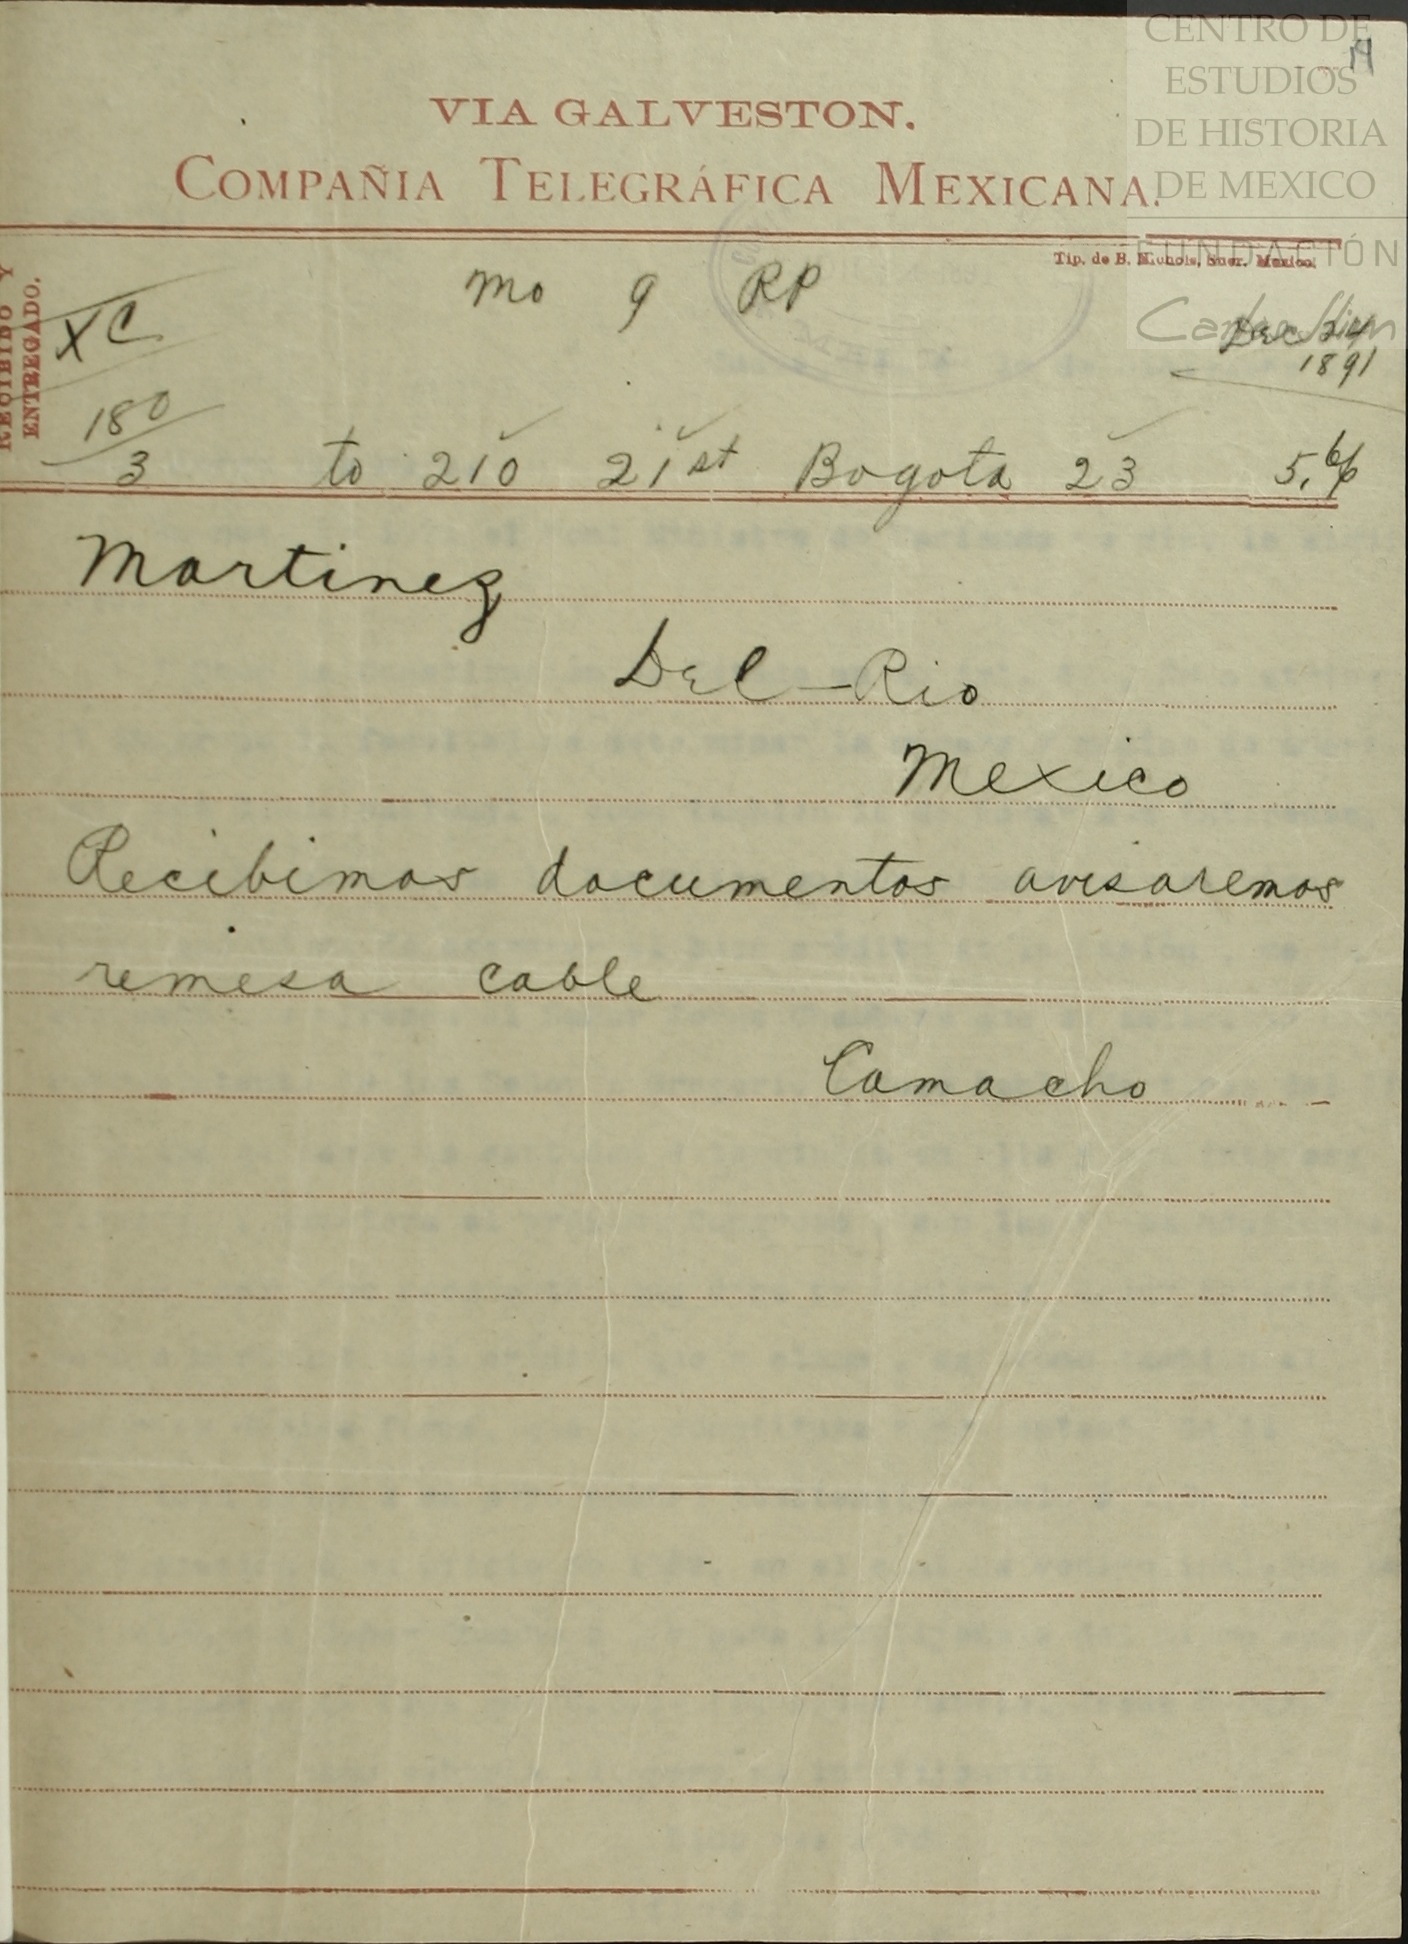 CENTRO DE
ESTUDIOS
DE HISTORIA
DE MEXICO
FUNDACIÓN
Carlos Slim
19
VIA GALVESTON.
COMPAÑIA TELEGRÁFICA MEXICANA.
Tip. de B. Nichols, Suer. Mexico.
RECIBIDO Y
ENTREGADO.
XC
Mo 9 RP
Dec 24
1891
180
3 to 210 21st Bogota 23 5.
Martinez
Del-Rio
Mexico
Recibimos documentos avisaremos
remesa cable
Camacho